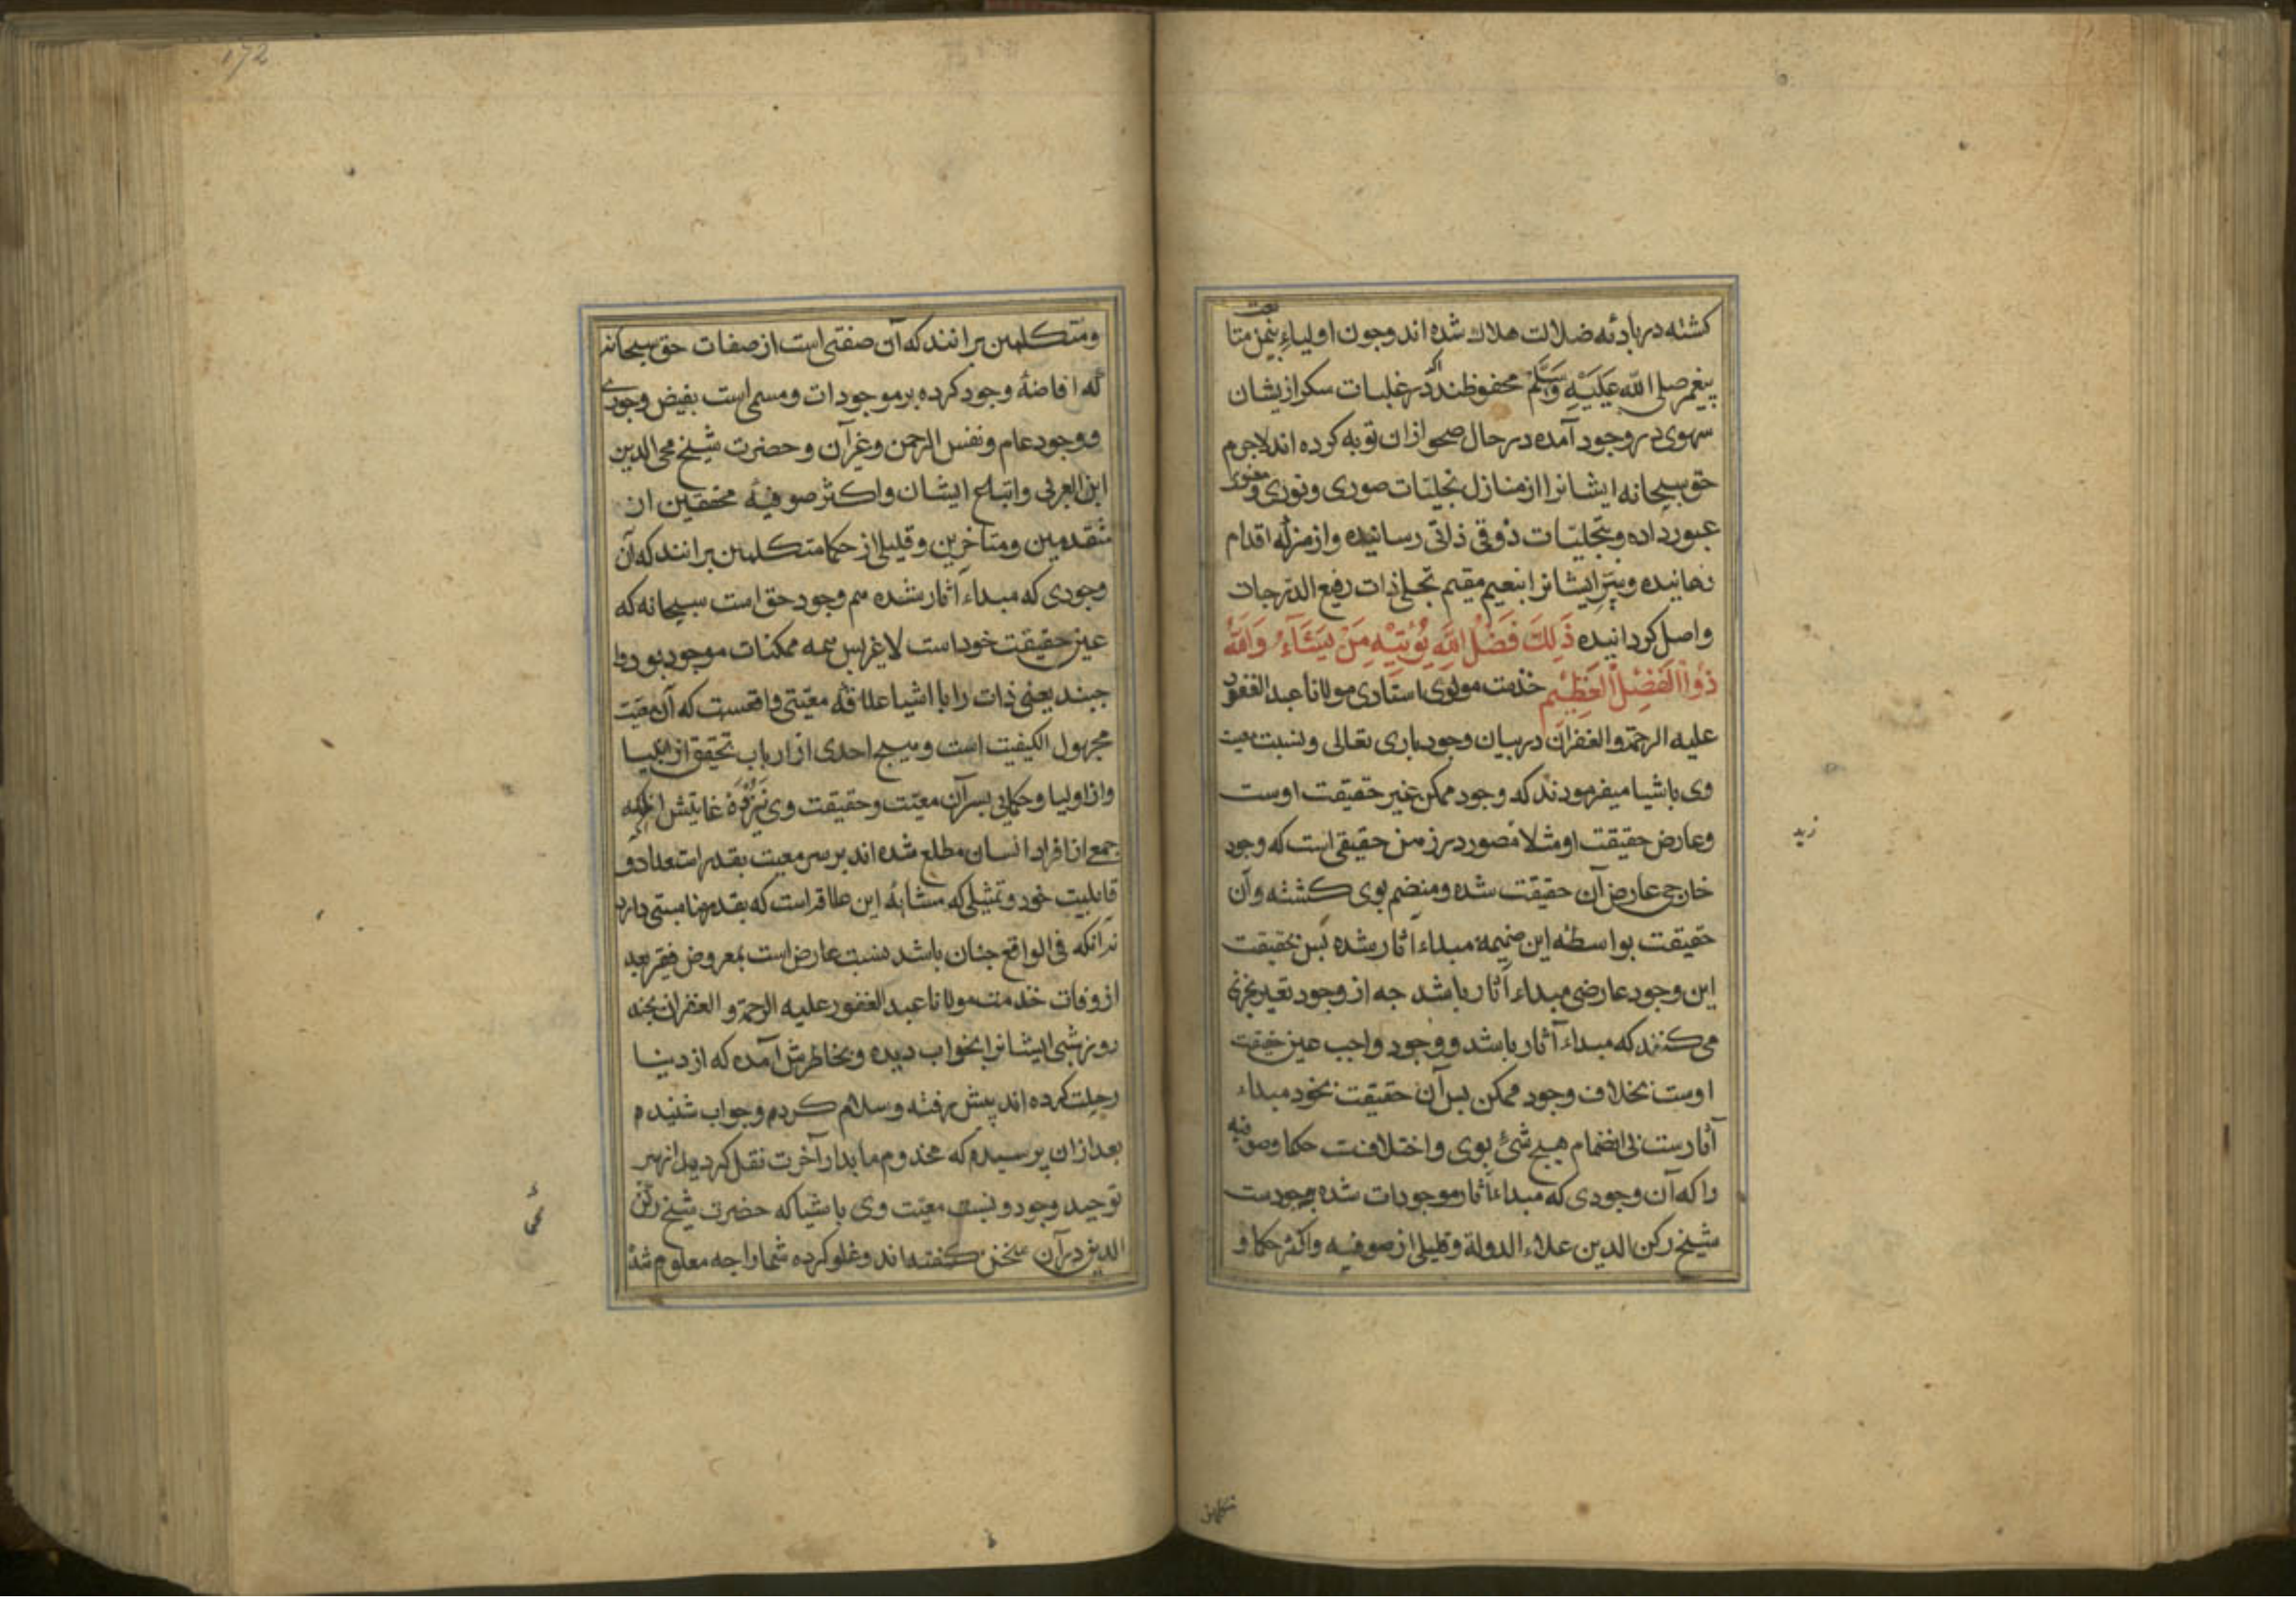 کشته در بادئه ضلالت هلاك شده اند وجون اولیاء بیمن متا بعت
پیغمبر صلی الله عَلَیْهِ وَسَلَّمْ محفوظند اکر در غلبات سکر ازیشان
سهوی در وجود آمده در حال صحو ازان توبه کرده اند لاجرم
حق سبحانه ایشانرا از منازل تجلیّات صوری ونوری ومعنوی
عبور داده وبتجلیّات ذوقی ذاتی رسانیده واز مزلّه اقدام
رهانیده وبسر ایشانرا بنعیم مقیم تجلی ذات رفیع الدرجات
واصل کردانیده ذَلِكَ فَضْلُ اللهِ یُؤْتِیْهِ مَنْ یَشَآءُ وَاللهُ
ذُوا الْفَضْلِ الْعَظِیْمِ خدمت مولوی استادی مولانا عبد الغفور
علیه الرحمة والغفران در بیان وجود باری تعالی ونسبت معیت
وی باشیا میفرمودند که وجود ممکن غیر حقیقت اوست
وعارض حقیقت او مثلا متصور در ذهن حقیقی است که وجود
خارجی عارض آن حقیقت شده ومنضم بوی کشته وآن
حقیقت بواسطه این ضمیمه مبداء آثار شده بس بحقیقت
این وجود عارضی مبداء آثار باشد جه از وجود تعبیر بخری
می کنند که مبداء آثار باشد ووجود واجب عین حقیقت
اوست بخلاف وجود ممکن بس آن حقیقت بخود مبداء
آثارست بی انضمام هیج شیٔ بوی واختلافست حکما وصوفیه
را که آن وجودی که مبداء آثار موجودات شده جه وجودست
شیخ رکن الدین علاء الدولة وقلیلی از صوفیه واکثر حکما و
متکلمین
زید
172
ومتکلمین برانند که آن صفتی است از صفات حق سبحانه
که افاضهٔ وجود کرده بر موجودات ومسمی است بفیض وجودی
ووجود عام ونفس الرحمن وغیر آن وحضرت شیخ محی الدین
ابن العربی واتباع ایشان واکثر صوفیهٔ محققین از
متقدمین ومتاخرین وقلیلی از حکما متکلمین برانند که آن
وجودی که مبداء آثار شده هم وجود حق است سبحانه که
عین حقیقت خود است لاغیر بس همه ممکنات موجود بوجود واجبند
یعنی ذات را با اشیا علاقهٔ معیّتی واقعست که آن معیّت
مجهول الکیفیت است وهیج احدی از ارباب تحقیق از انبیا
واز اولیا وحکما پی بسر آن معیّت وحقیقت وی نبرده غایتش انکه
جمعی از افراد انسان مطلع شده اند بر سر معیت بقدر استعداد و
قابلیت خود وتمثیلی که مشابه این علاقه است که بقدر مناسبتی دارد
نه آنکه فی الواقع جنان باشد نسبت عارض است بمعروض فقیر بعد
از وفات خدمت مولانا عبد الغفور علیه الرحمة والغفران بجند
روز شبی ایشانرا بخواب دیده وبخاطرش آمده که از دنیا
رحلت کرده اند پیش رفته وسلام کردم وجواب شنیدم
بعد ازان پرسیدم که مخدوم ما بدار آخرت نقل کردید از سر
توحید وجود ونسبت معیّت وی باشیا که حضرت شیخ
الدین در آن سخن کفته اند وغلو کرده شما را جه معلوم شد